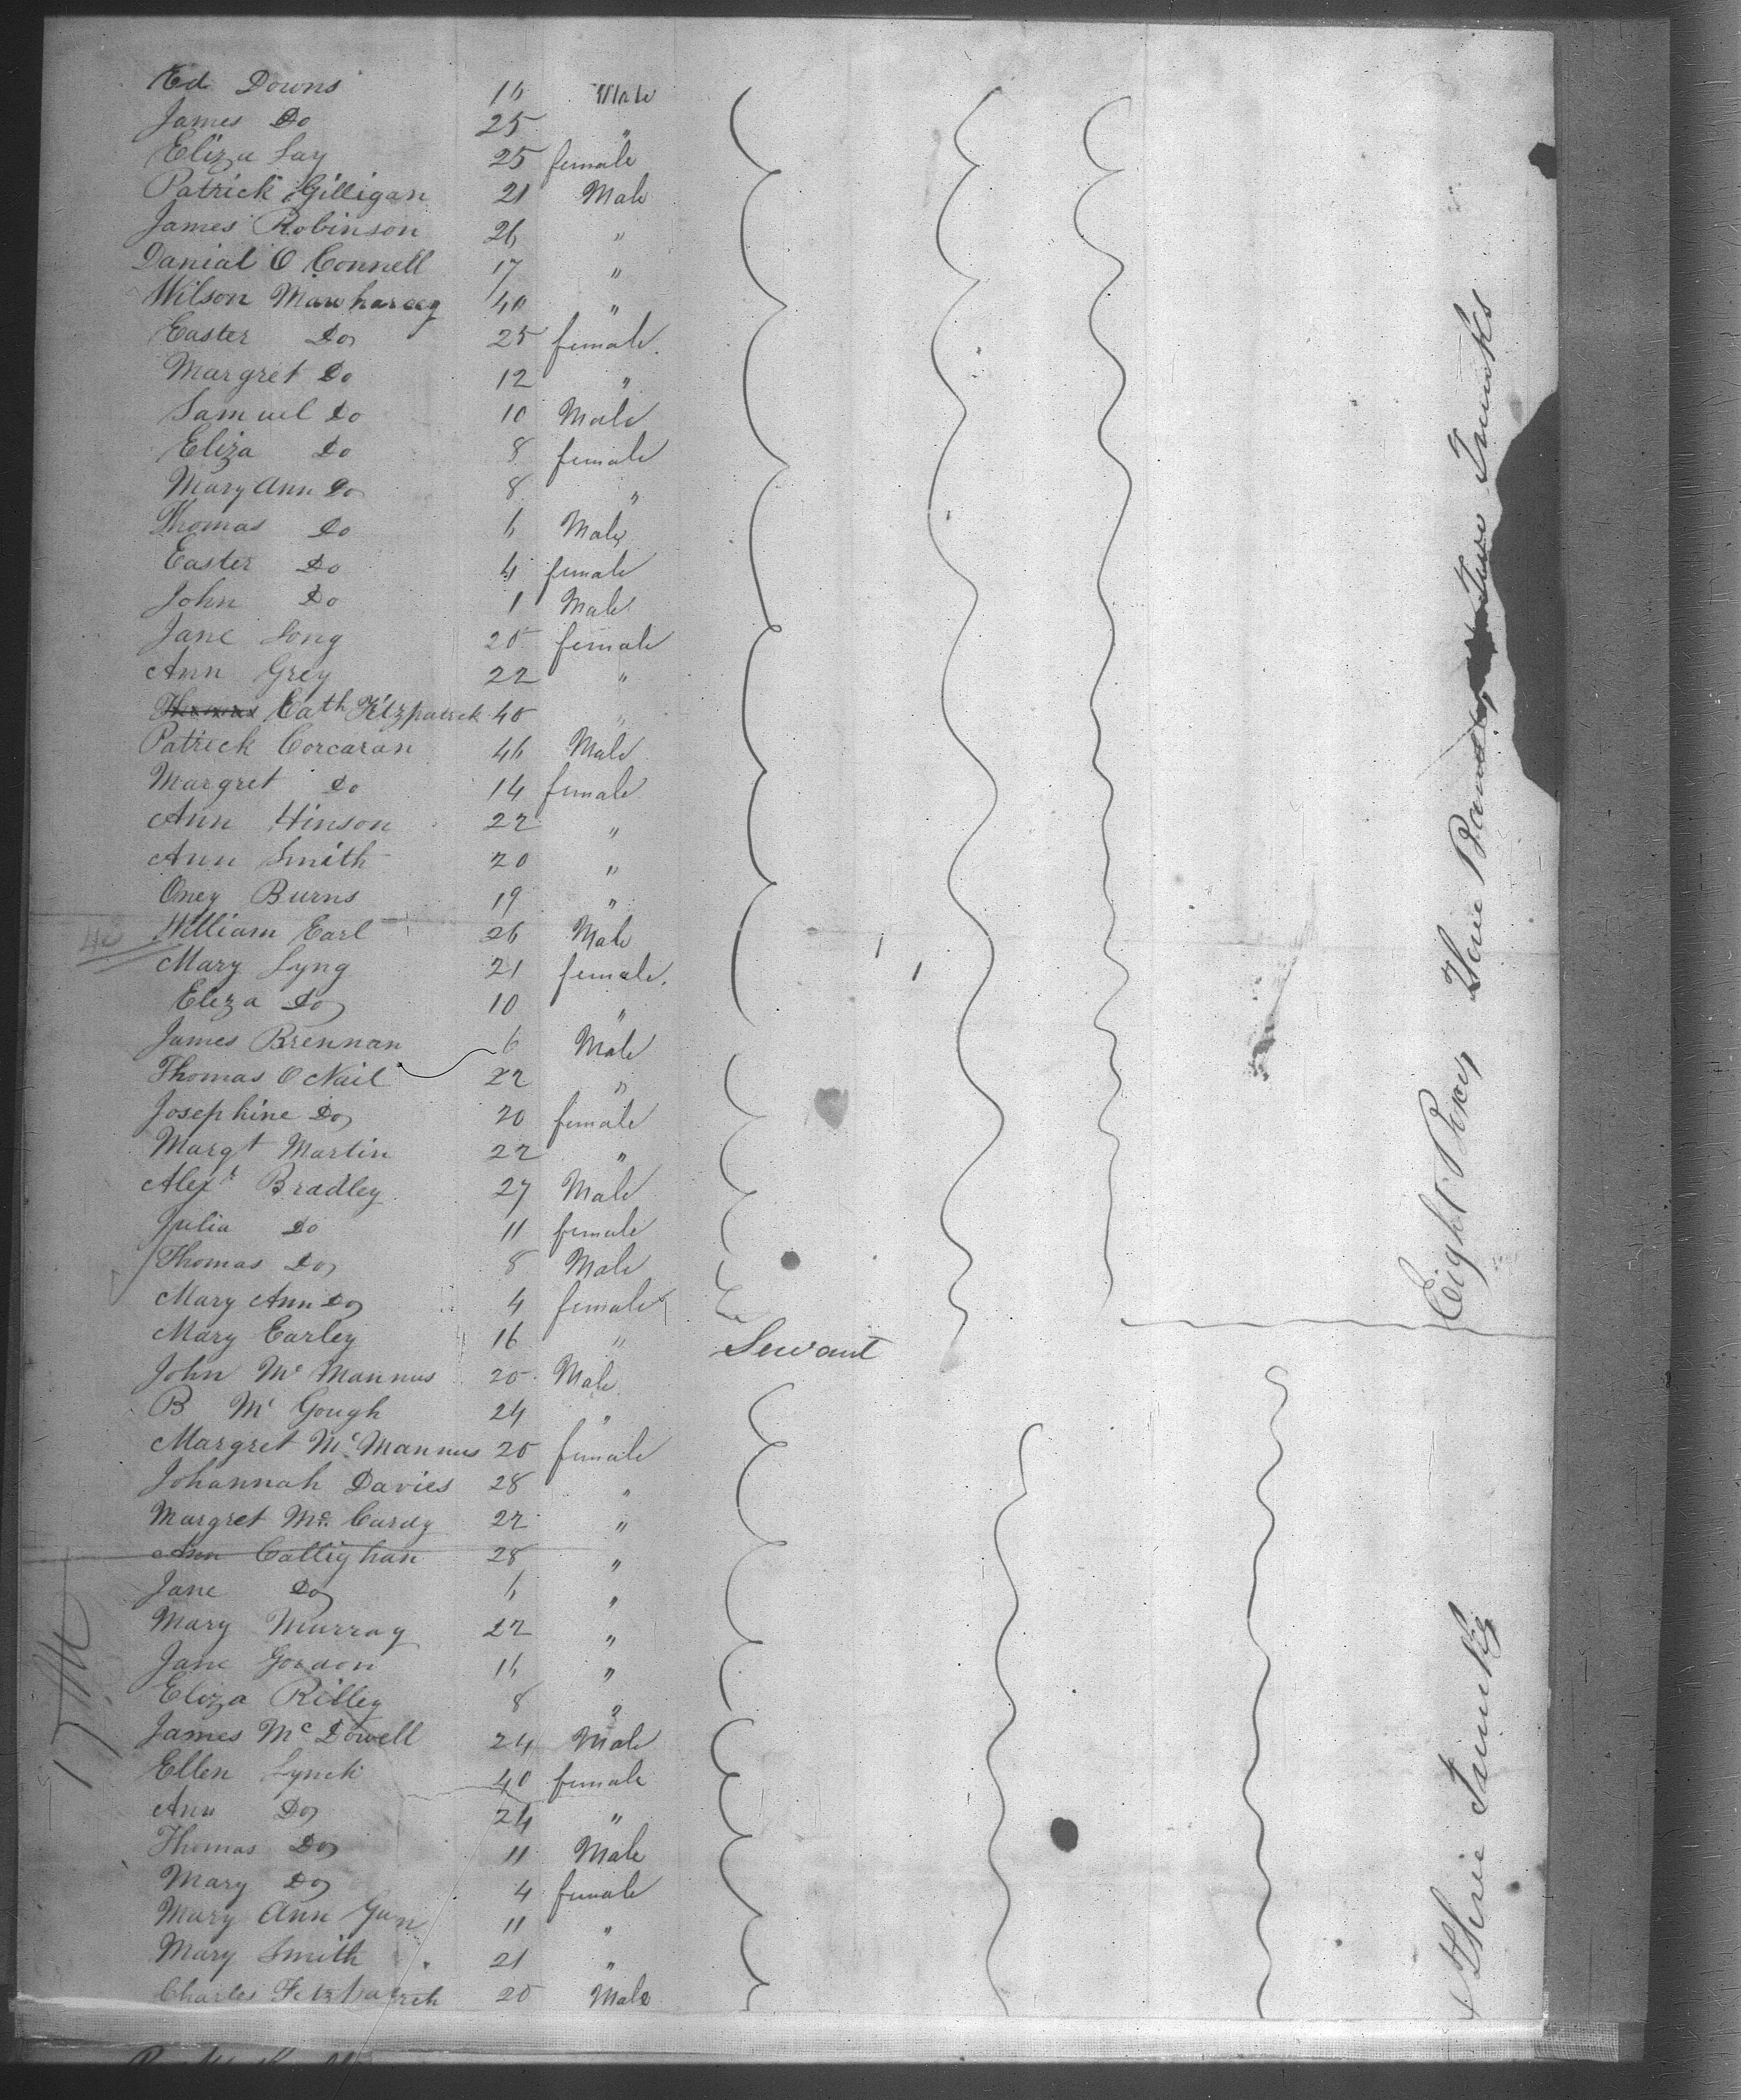 Ed. Downs 16 Male
James Do 25 "
Eliza Lay 25 female
Patrick Gilligan 21 Male
James Robinson 26 "
Danial O Connell 17 "
Wilson 40 "
Easter Do 25 female
Margret Do 12 "
Samuel Do 10 Male
Eliza Do 8 female
Mary Ann Do 8 "
Thomas Do 6 Male
Easter Do 4 female
John Do 1 Male
Jane Long 20 female
Ann Grey 22 "
Thomas Cath Fitzpatrick 40 "
Patrick Corcaran 46 Male
Margret Do 14 female
Ann Hinson 22 "
Ann Smith 20 "
Oney Burns 19 "
William Earl 26 Male
Mary Lyng 21 female
Eliza Do 10 "
James Brennan 6 Male
Thomas O Nail 22 "
Josephine Do 20 female
Margt Martin 22 "
Alexr Bradley 27 Male
Julia Do 11 female
Thomas Do 8 Male
Mary Ann Do 4 female
Mary Earley 16 " Servant
John Mc Mannus 20 Male
B Mc Gough 24 "
Margret Mc Mannus 20 female
Johannah Davies 28 "
Margret Mc. Cardy 22 "
Ann Callighan 28 "
Jane Do 6 "
Mary Murray 22 "
Jane Gordon 16 "
Eliza Rilley 8 "
James Mc Dowell 24 Male
Ellen Lynch 40 female
Ann Do 24 "
Thomas Do 11 Male
Mary Do 4 female
Mary Ann Gun 11 "
Mary Smith 21 "
Charles Fitzpatrick 20 Male
Eight Boxes
Two Trunks
Three Trunks